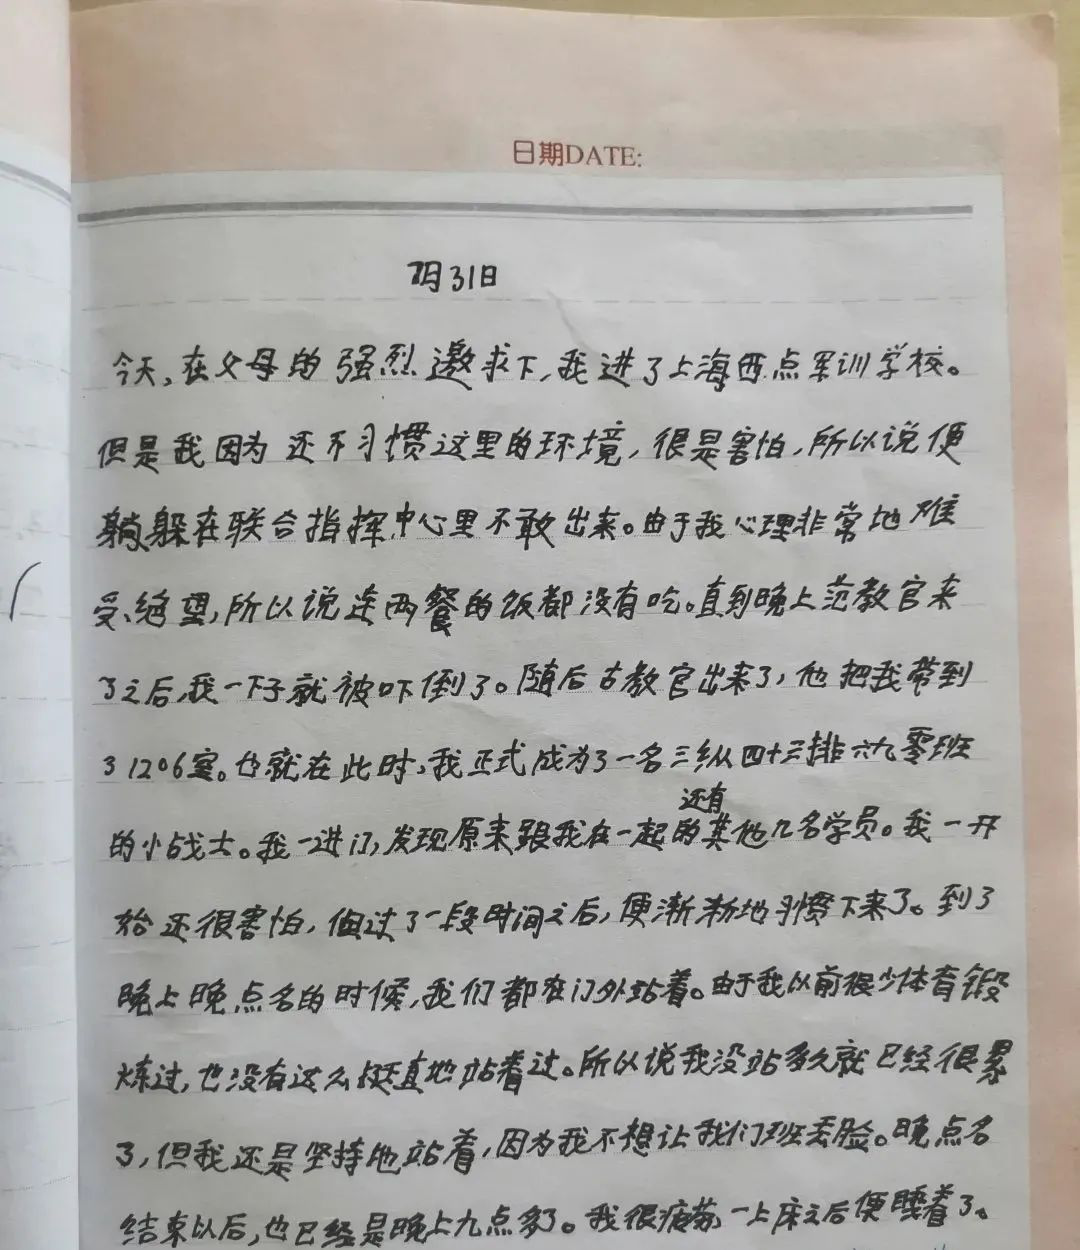 日期DATE:
7月31日
今天,在父母的强烈邀求下,我进了上海西点军训学校。
但是我因为还不习惯这里的环境,很是害怕,所以说便
躺躲在联合指挥中心里不敢出来。由于我心理非常地难
受、绝望,所以说连两餐的饭都没有吃。直到晚上范教官来
了之后,我一下子就被吓倒了。随后古教官出来了,他把我带到
了1206室。也就在此时,我正式成为了一名三纵四十三排六九零班
还有
的小战士。我一进门,发现原来跟我在一起的其他几名学员。我一开
始还很害怕,但过了一段时间之后,便渐渐地习惯下来了。到了
晚上晚点名的时候,我们都在门外站着。由于我以前很少体育锻
炼过,也没有这么挺直地站着过。所以说我没站多久就已经很累
了,但我还是坚持地站着,因为我不想让我们班丢脸。晚点名
结束以后,也已经是晚上九点多了。我很疲劳,一上床之后便睡着了。